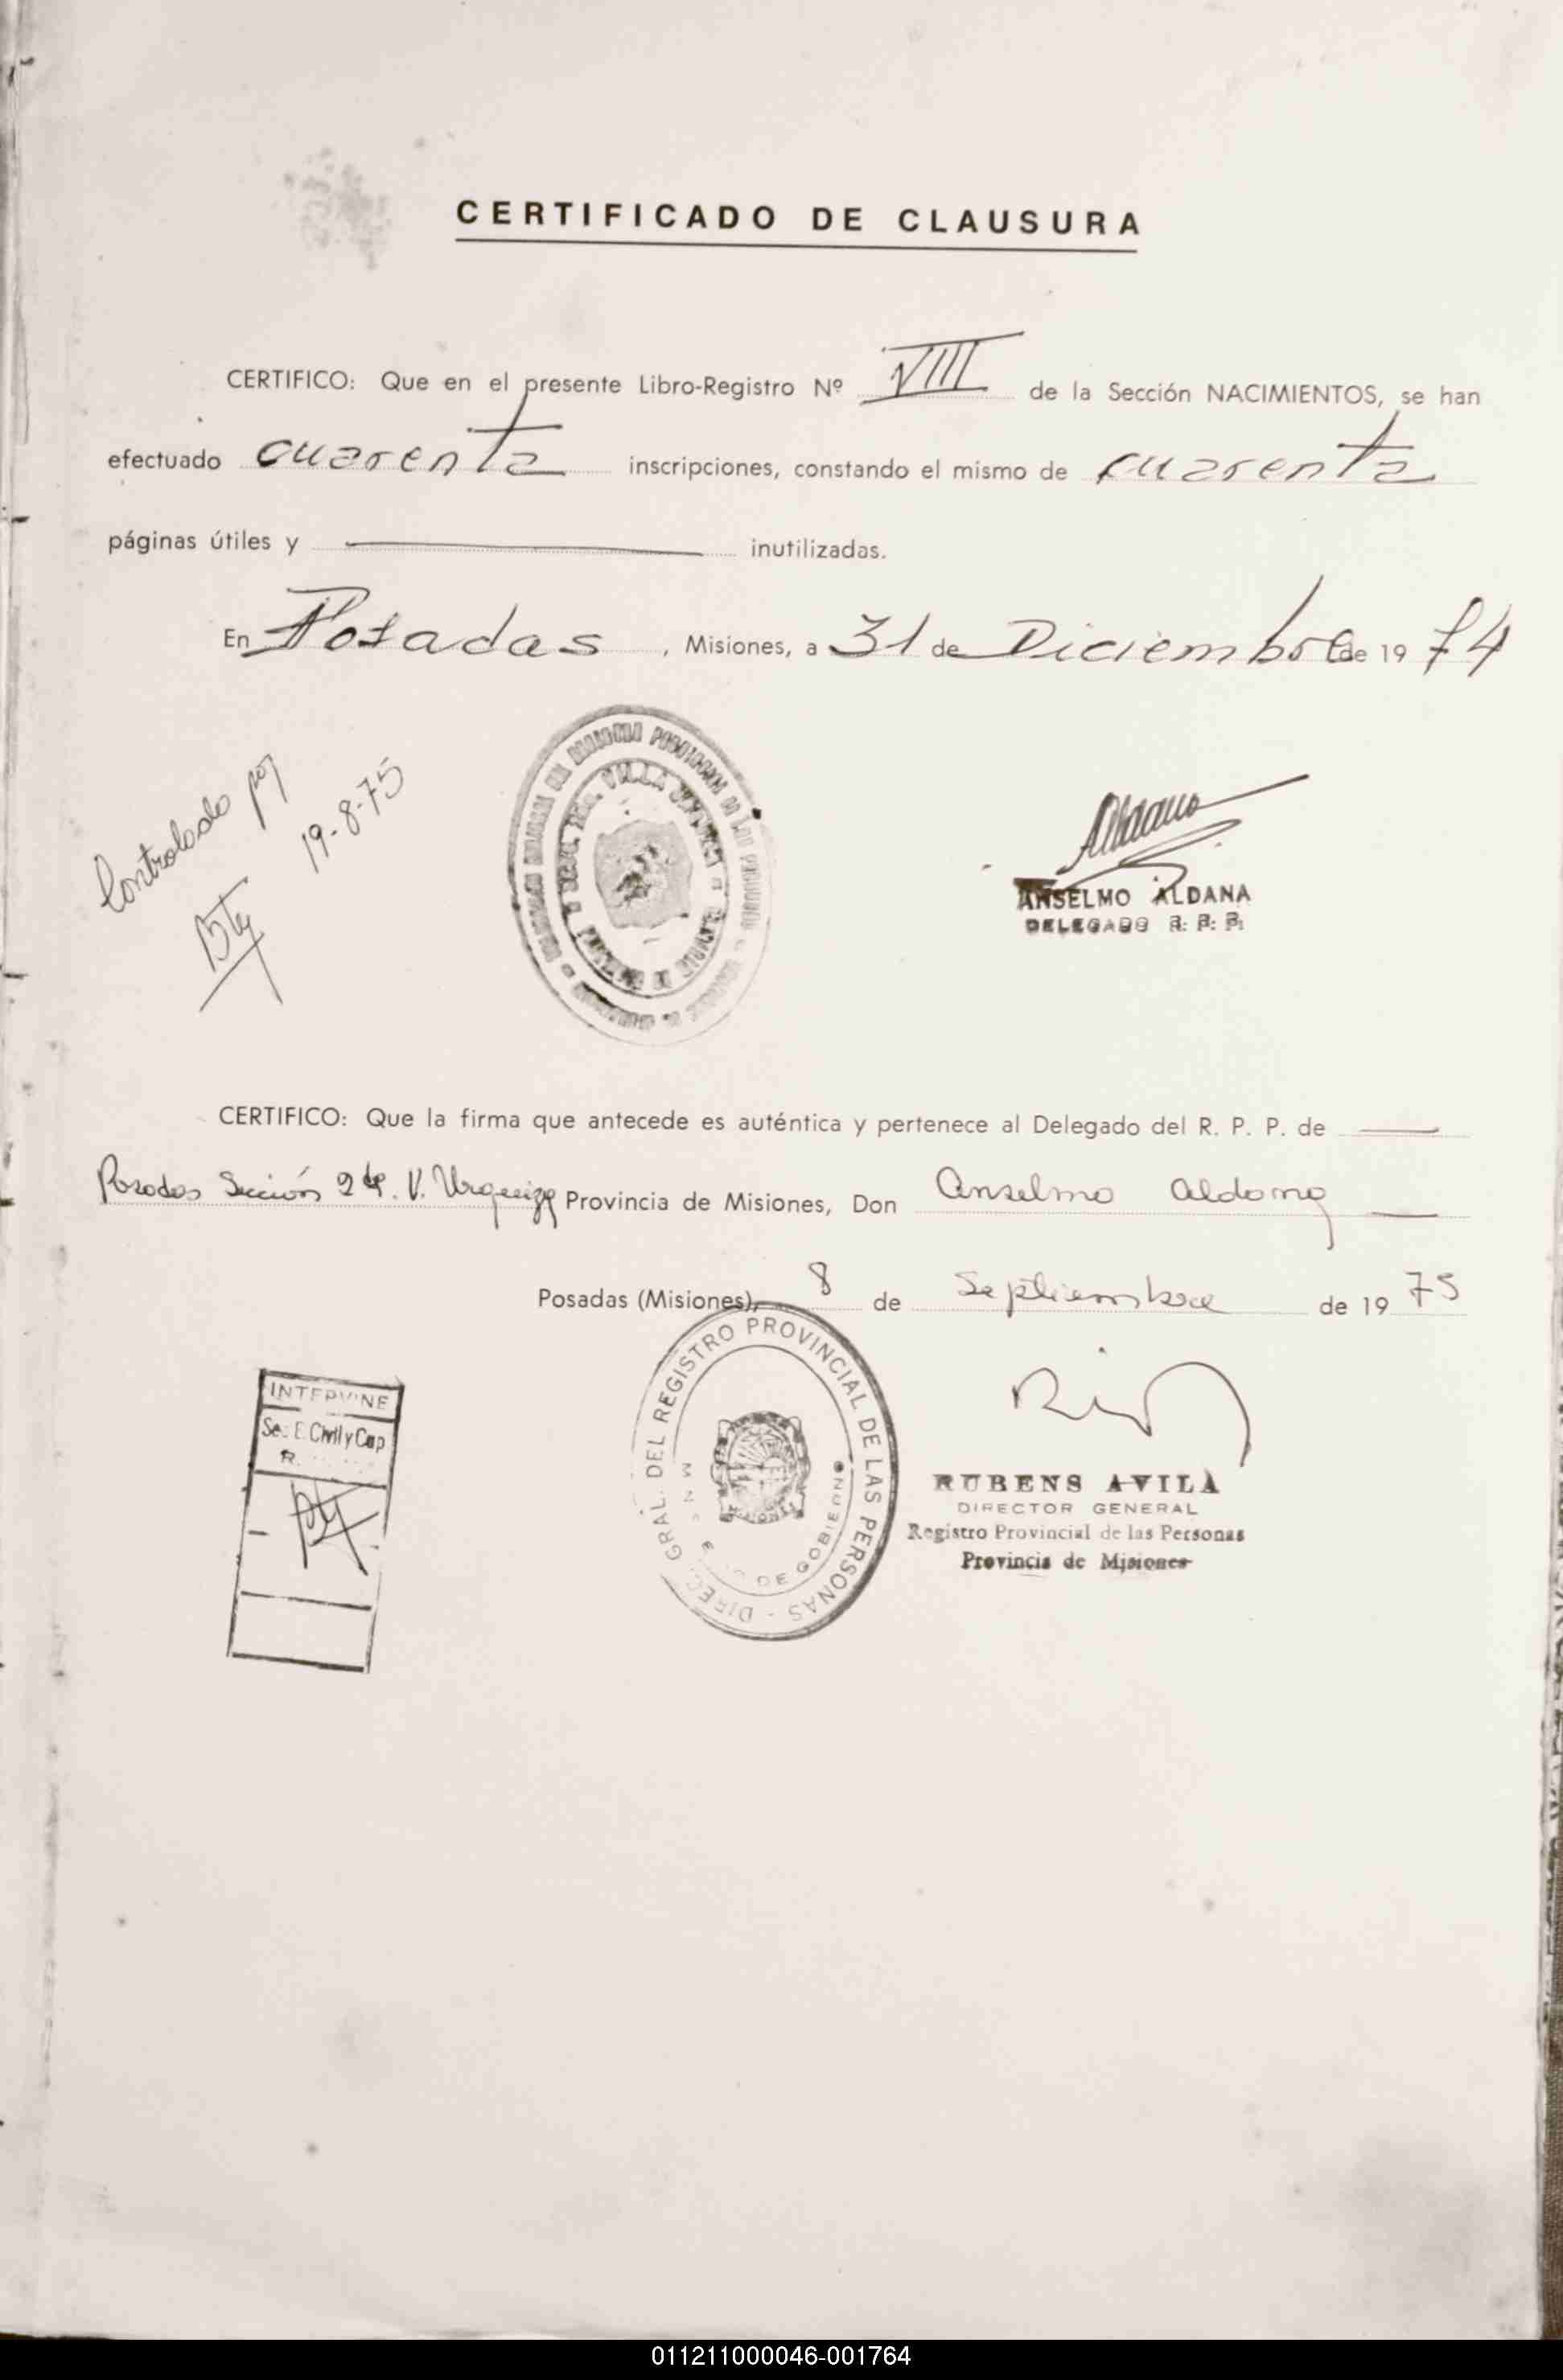 CERTIFICADO DE CLAUSURA
CERTIFICO: Que en el presente Libro-Registro Nº VIII de la Sección NACIMIENTOS, se han
efectuado cuarenta inscripciones, constando el mismo de cuarenta
páginas útiles y inutilizadas.
En Posadas, Misiones, a 31 de Diciembre de 1974
Controlado por
19-8-75
ANSELMO ALDANA
DELEGADO R. P. P.
CERTIFICO: Que la firma que antecede es auténtica y pertenece al Delegado del R. P. P. de
Posadas Sección 2da. V. Urquiza Provincia de Misiones, Don Anselmo Aldana
Posadas (Misiones), 8 de Septiembre de 1975
DIREC. GRAL. DEL REGISTRO PROVINCIAL DE LAS PERSONAS -
DE GOBIERNO
INTERVINE
Sec. E. Civil y Cap
RUBENS AVILA
DIRECTOR GENERAL
Registro Provincial de las Personas
Provincia de Misiones
011211000046-001764